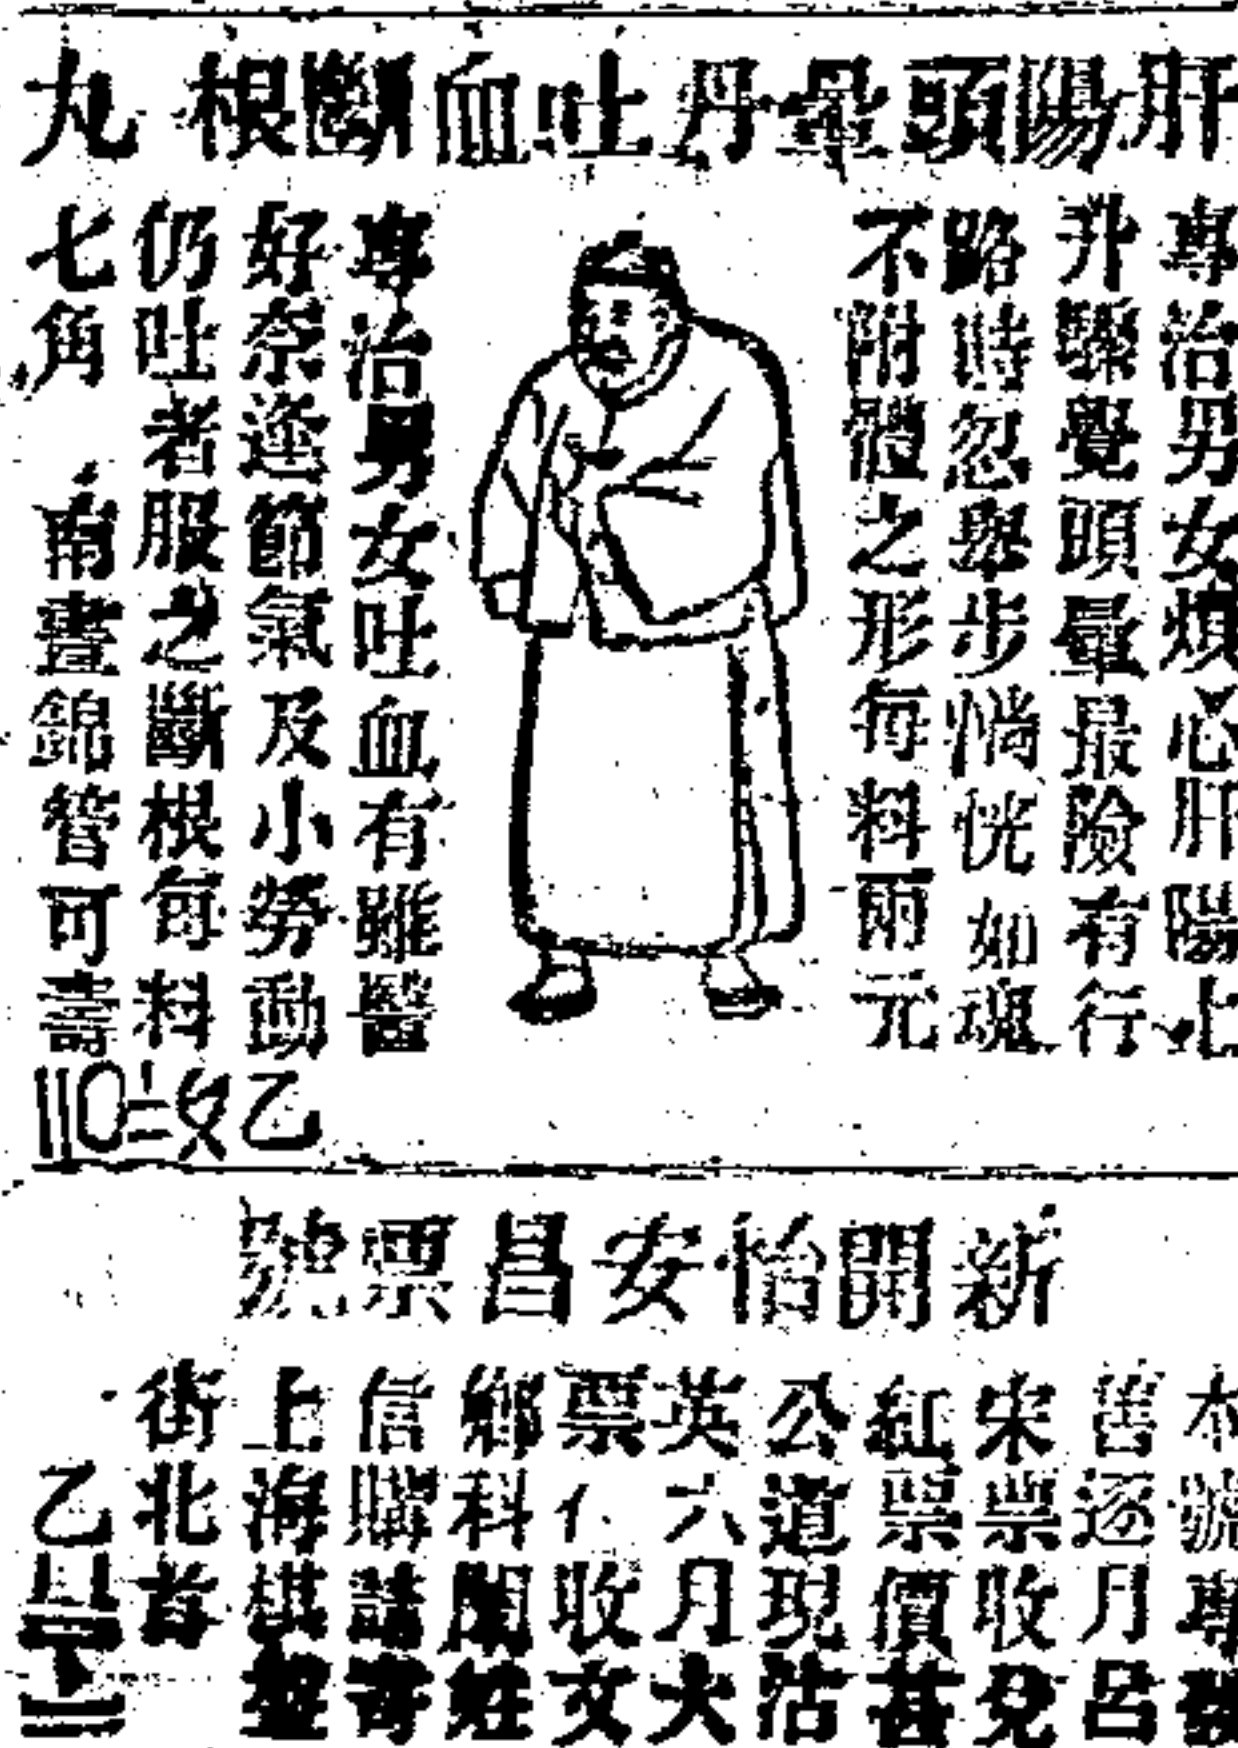 肝陽頭暈丹吐血斷根丸
專治男女煩心肝陽上
升驟覺頭暈最險有行
路時忽舉步惝恍如魂
不附體之形每料兩元
專治男女吐血有雖醫
好奈逢節氣及小勞動
仍吐者服之斷根每料
七角 南晝錦筶可壽
新開怡安昌票號
本號專發
舊逐月呂
宋票收兌
紅票價甚
公道現沽
英六月大
票仁收文
鄉科闈姓
信購請寄
上海棋盤
街北首